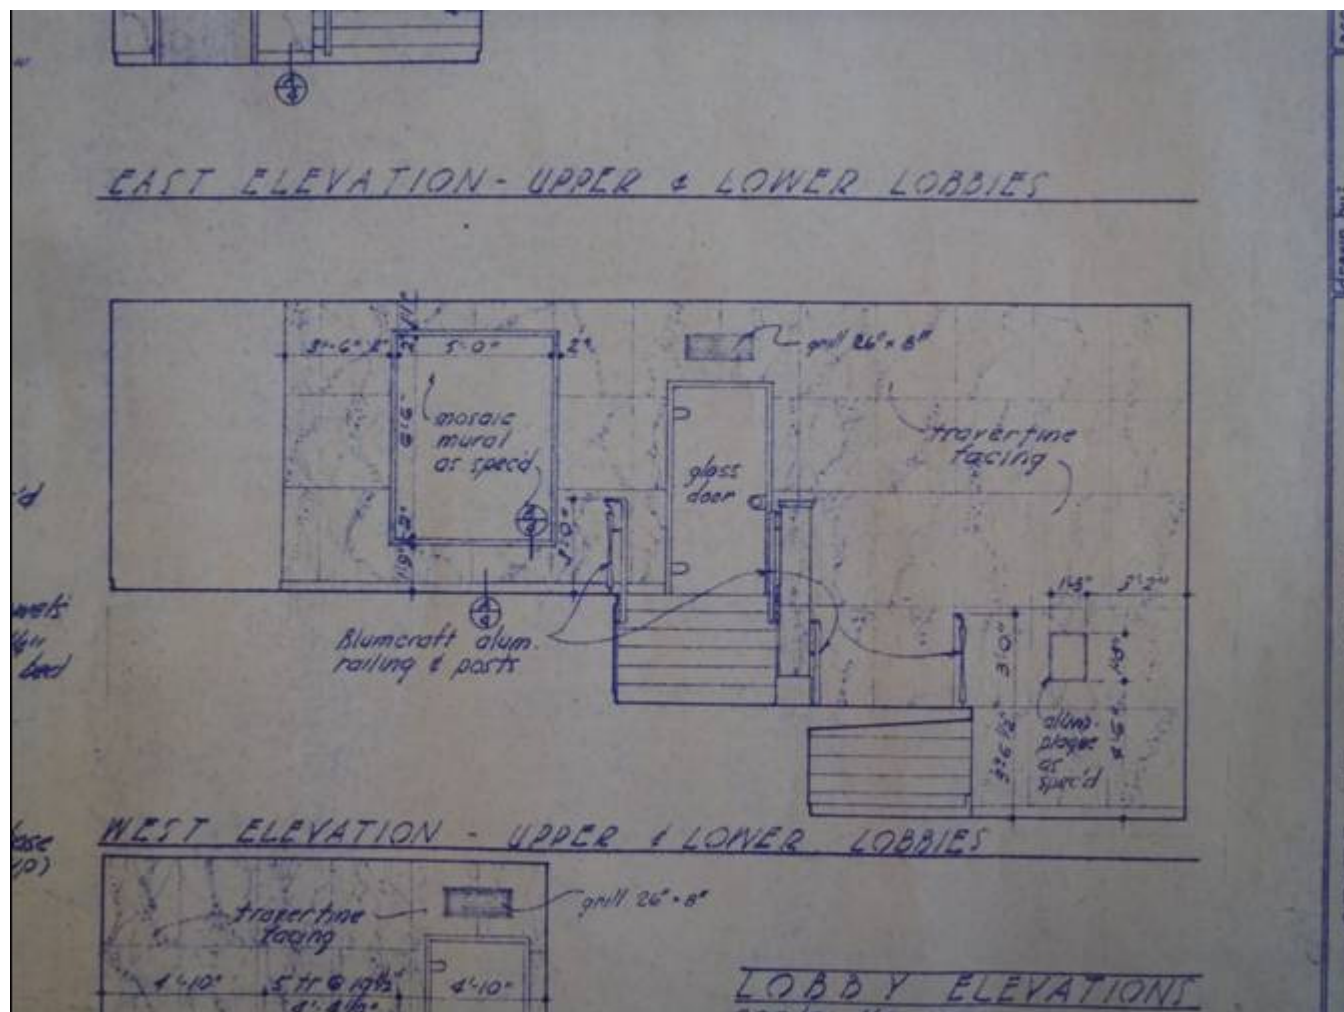 EAST ELEVATION - UPPER & LOWER LOBBIES
3'-6" 2" 5'-0" 2"
grill 26" × 8"
6'-6"
mosaic
mural
as spec'd
glass
door
travertine
facing
3'-0"
1'-9"
2"
Blumcraft alum.
railing & posts
3'-0"
3'-2"
alum.
plaque
as
spec'd
WEST ELEVATION - UPPER & LOWER LOBBIES
travertine
facing
grill 26" × 8"
4'-10" 5 TR @ 4'-10"
LOBBY ELEVATIONS